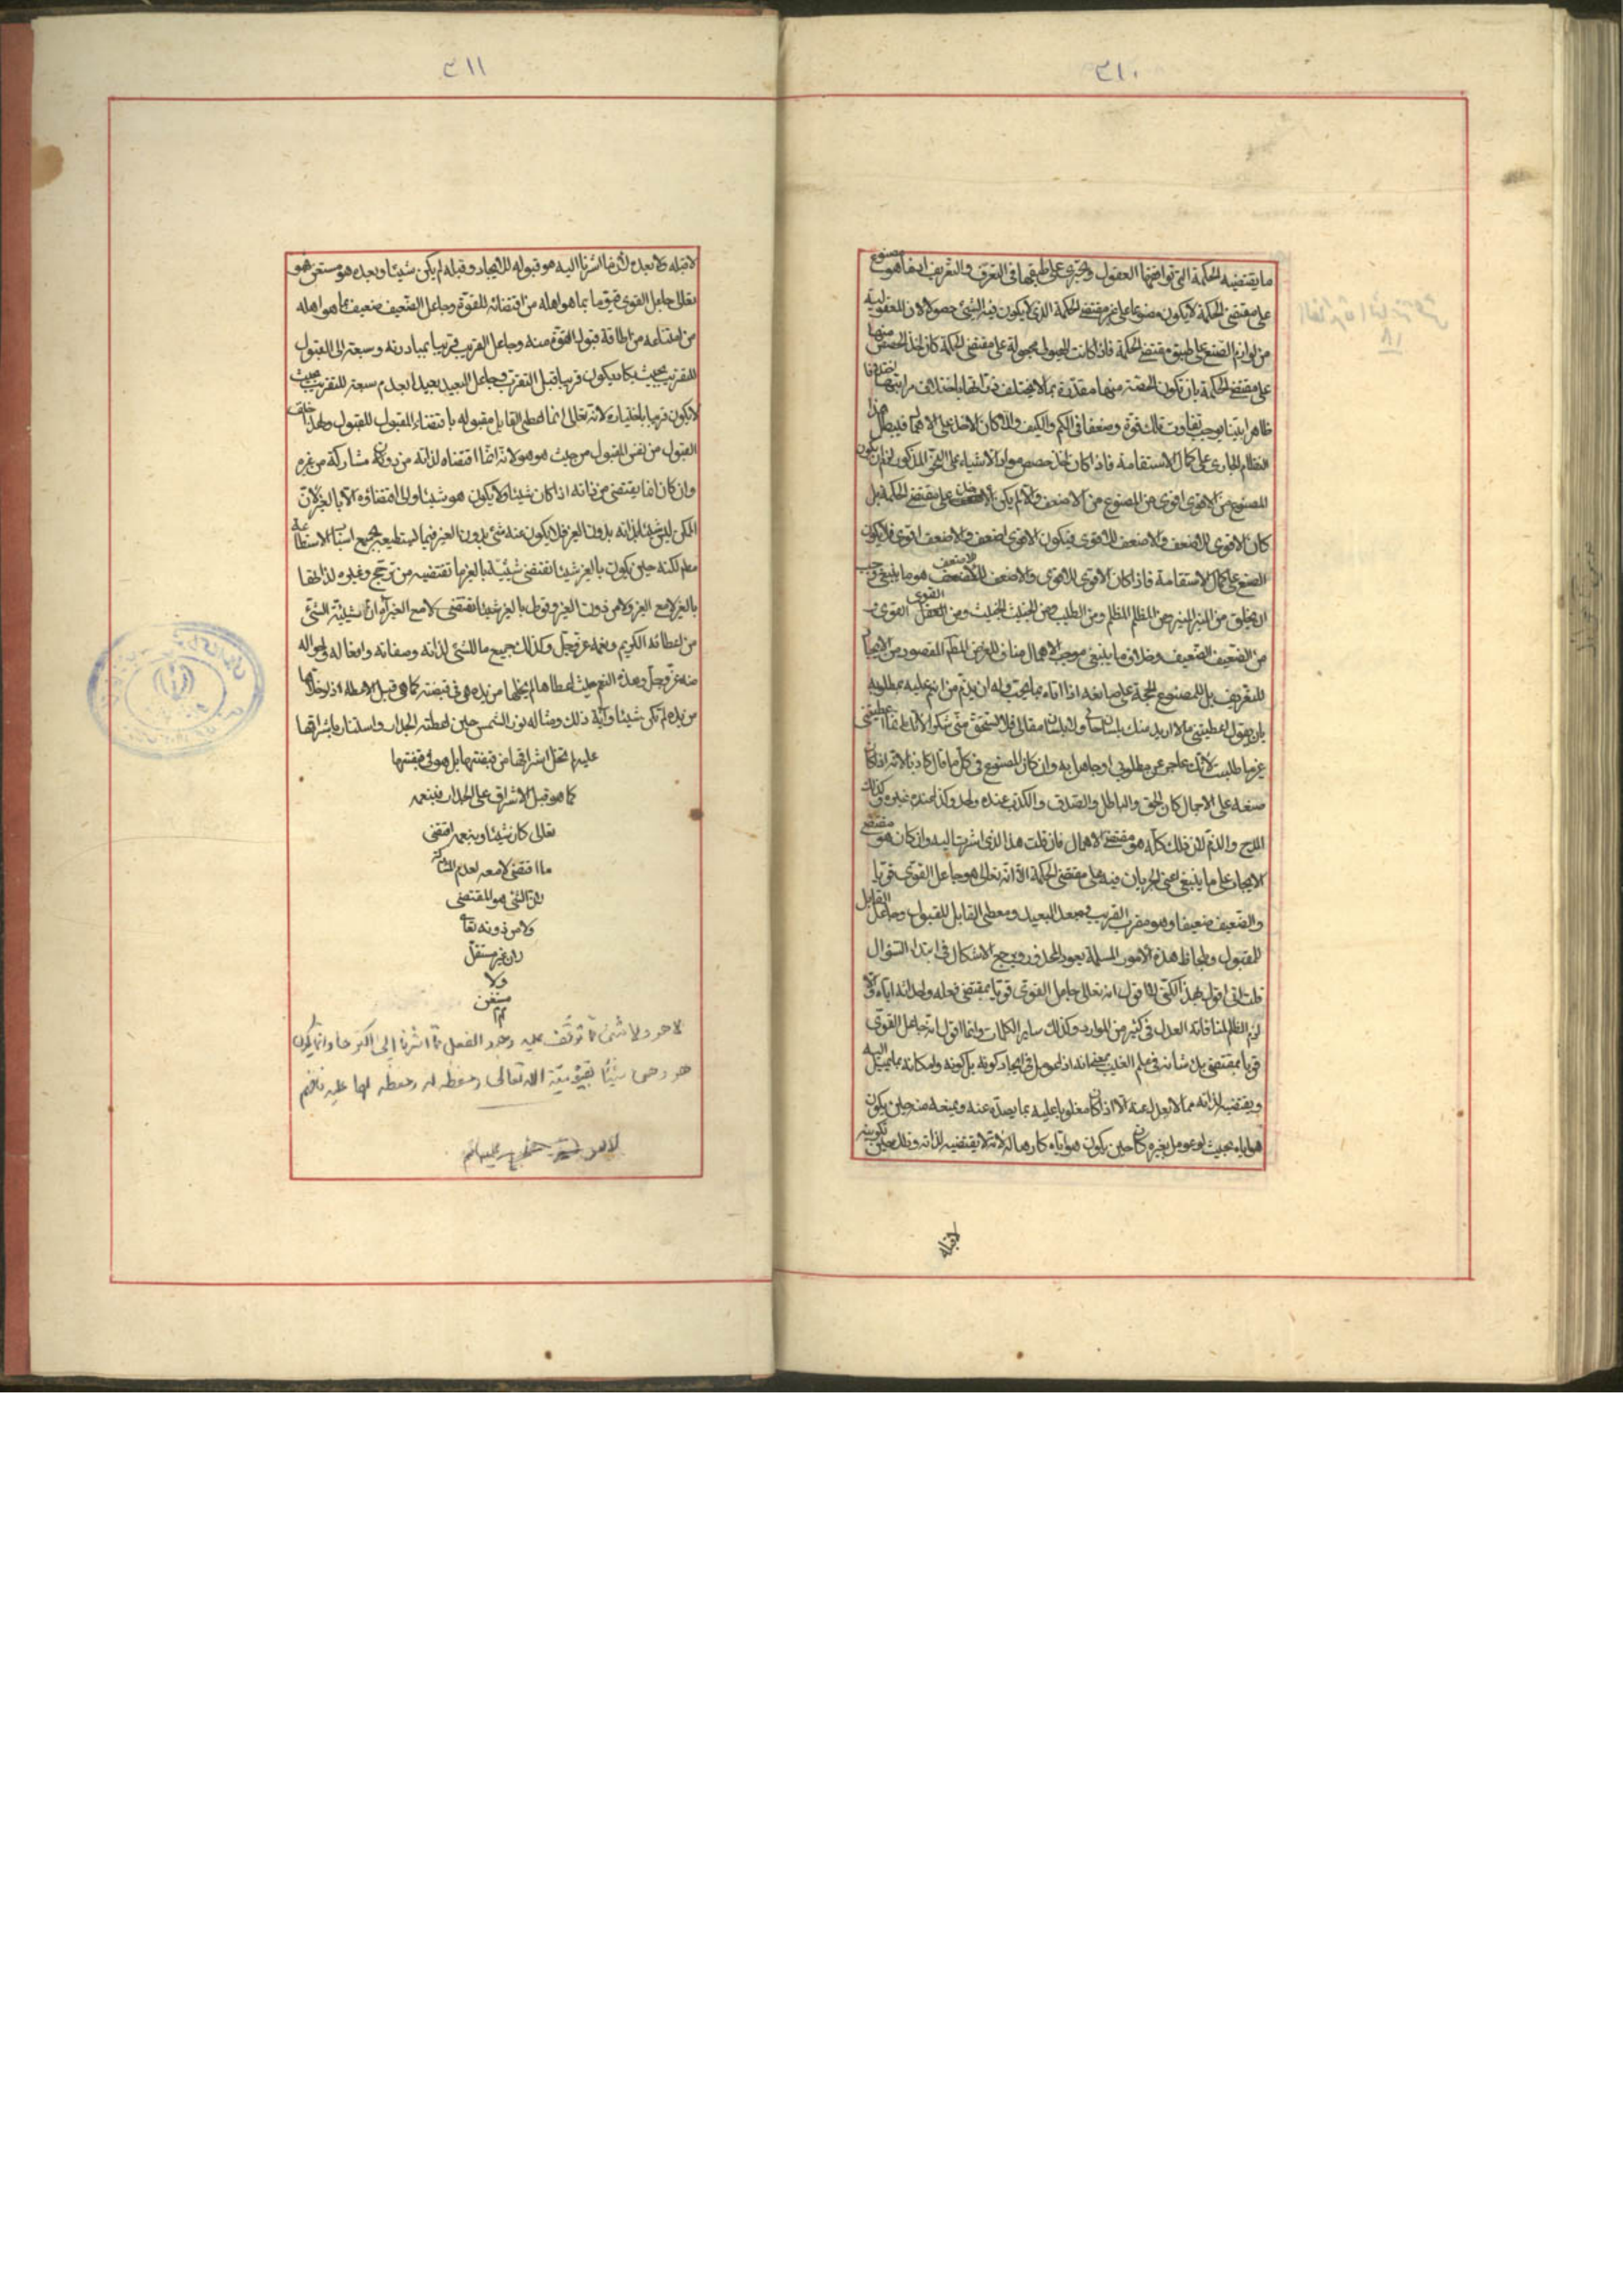 ٣١٠
ما يقتضيه الحكمة التي تواضعها العقول وتجري على طبقها في التعرف والتعريف ايضا هو مصنوع
على مقتضى الحكمة لا يكون مصنوعا على غير مقتضى الحكمة الذي لا يكون فيه الشيء
من لوازم الصنع على طبق مقتضى الحكمة فاذا كانت مجعولة على مقتضى الحكمة كان اخذ الحصص منها
على مقتضى الحكمة بان تكون الحصة منها مقدرة بما لا يختلف باختلاف مراتبها
ظاهرا بينا يوجب تفاوت ذلك قوة وضعفا في الكم والكيف والا كان
النظام الجاري على كمال الاستقامة فاذا كان اخذ حصص مواد الاشياء على النحو المذكور لزم ان يكون
المصنوع من الاقوى اقوى من المصنوع من الاضعف والا لم يكن على مقتضى الحكمة بل
كان الاقوى للاضعف والاضعف للاقوى فيكون الاقوى اضعف والاضعف اقوى فلا يكون
الصنع على كمال الاستقامة فاذا كان الاقوى للاقوى والاضعف للاضعف هو ما ينبغي وجب
ان يخلق من المنير المنير ومن المظلم المظلم ومن الطيب ومن الخبيث الخبيث ومن القوى القوى و
من الضعيف الضعيف وخلاف ما ينبغي موجب الاهمال مناف للغرض المقصود من الايجاد
للتعريف بل للمصنوع الحجة على صانعه اذا اتاه بما يحب وله ان يذم من انعم عليه بمطلوبه
بان يقول اعطيتني ما لا اريد منك بلسان حالي ولا بلسان مقالي فلا تستحق مني شكرا لانك انما اعطيتني
غير ما طلبت لانك عاجز عن مطلوبي او جاهل به وان كان المصنوع في كل ما قال كاذبا لانه اذا كان
صنعه على الاهمال كان الحق والباطل والصدق والكذب عنده واحد وكذا عنده غيره وكذلك
المدح والذم لان ذلك كله هو مقتضى الاهمال فان قلت هذا الذي اشرت اليه وان كان هو مقتضى
الايجاد على ما ينبغي اعني الجريان فيه على مقتضى الحكمة الا انه تعالى هو جاعل القوى قويا
والضعيف ضعيفا وهو مقرب القريب ومبعد البعيد ومعطي القابل للقبول وجاعل القابل
للمقبول وبلحاظ هذه الامور المسلمة يعود المحذور ويرجع الاشكال في ابتداء السؤال
قلت اني اقول بهذا لكني لا اقول انه تعالى جاعل القوى قويا بمقتضى فعله واحداثه اياه والا
لزم الظلم لمنافاته العدل في كثير من الموارد وكذلك ساير الكلمات وانما اقول انه جاعل القوى
قويا بمقتضى بل شانه في علم الغيب في ايجاد كونه بل كونه وامكانه بما يميل اليه
ويقتضيه لذاته مما لا يعدل عنه الا اذا كان مغلوبا عليه بما يصده عنه ويمنعه منه حين يكون
هو اياه بحيث لو عومل بغيره كان حين يكون هو اياه كارها له لانه لا يقتضيه لذاته وذلك حين تكوينه
لاقبله
٣١١
لا قبله ولا بعده لان ما اشرنا اليه هو قبوله للايجاد وقبله لم يكن شيئا وبعده هو مستغن فهو
تعالى جاعل القوى قويا بما هو اهله من اقتضائه للقوة وجاعل الضعيف ضعيفا بما هو اهله
من امتناعه من اطاقة قبول القوة منه وجاعل القريب قريبا بمبادرته وسبقه الى القبول
للتقريب بحيث يكاد يكون قريبا قبل التقرب وجاعل البعيد بعيدا بعدم سبقه للتقريب بحيث
لا يكون قريبا باختياره لانه تعالى انما اعطى القابل مقبوله باقتضاء المقبول للقبول ولهذا خلق
القبول من نفس المقبول من حيث هو هو لانه انما اقتضاه لذاته من دون مشاركة من غيره
وان كان انما يقتضي من ذاته اذا كان شيئا ولا يكون هو شيئا ولا اقتضاؤه الا بالغير لان
الممكن ليس شيئا لذاته بدون الغير فلا يكون منه شيء بدون الغير فيما يستطيعه بجميع اسباب الاستطاعة
لكنه حين يكون بالغير شيئا تقتضي شيئيته بالغير ما تقتضيه من ترجح وغيره
بالغير لا مع الغير ولا من دون الغير وقولي بالغير شيئا تقتضي لا مع الغير ان شيئية الشيء
من اعطائه الكريم ونعمه عز وجل وكذلك جميع ما للشيء لذاته وصفاته وافعاله واحواله
منه عز وجل وهذه النعم حيث اعطاها لم يخلها من يده بل هي في قبضته كما هي قبل الاعطاء اذ لو خلاها
من يده لم تكن شيئا وآية ذلك ومثاله نور الشمس حين اعطته الجدار واستنار باشراقها
عليه لم تخل اشراقها من قبضتها بل هو في قبضتها
كما هو قبل الاشراق على الجدار فبنعمه
تعالى كان شيئا وبنعمه اقتضى
ما اقتضى لا معه لعدم المشاركة
لان الشيء هو المقتضي
ولا من دونه تعالى
لانه غير مستقل
ولا
مستغن
تم
لا هو ولا شيء مما توقف عليه وجود الفعل مما اشرنا الى اكثرها وانما يكون
هو وهي شيئا بقيوميته الله تعالى وحفظه له وحفظه لها عليه فافهم